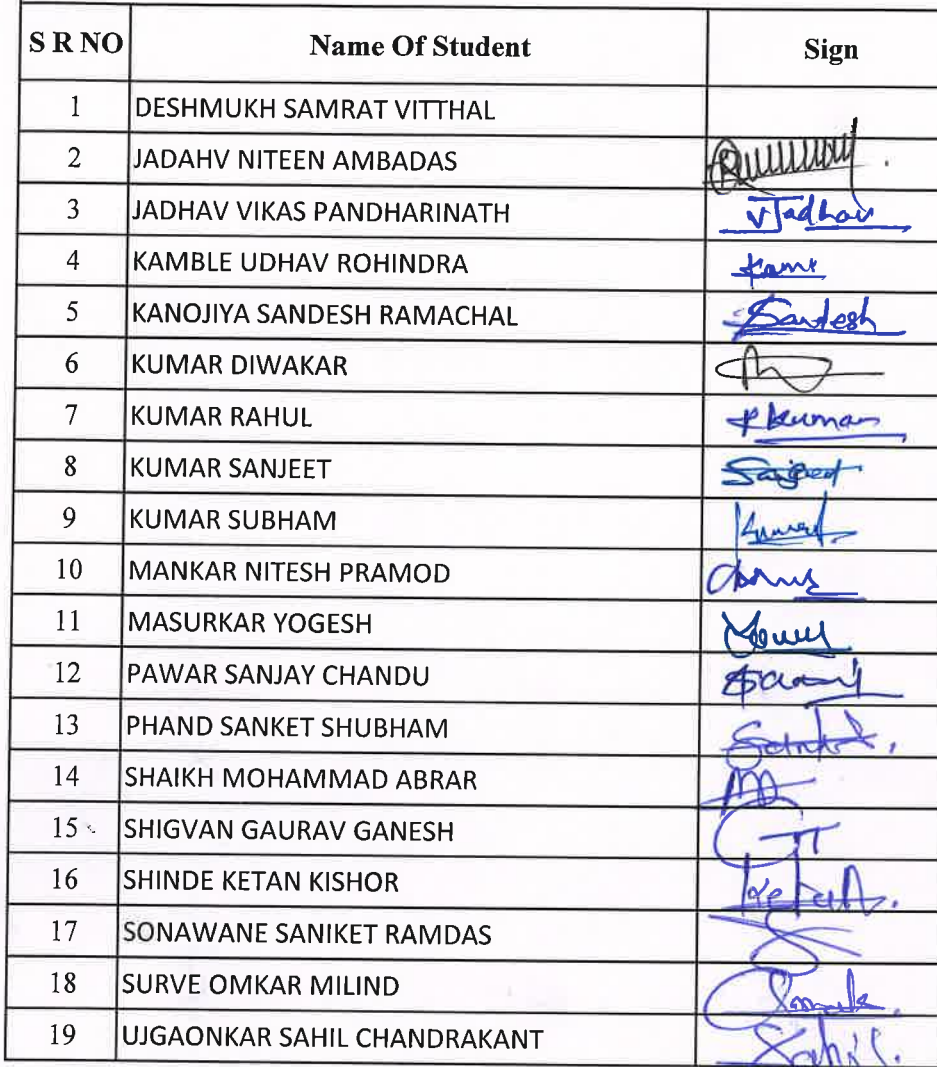 S R NO Name Of Student Sign
1 DESHMUKH SAMRAT VITTHAL
2 JADAHV NITEEN AMBADAS
3 JADHAV VIKAS PANDHARINATH VJadhav
4 KAMBLE UDHAV ROHINDRA
5 KANOJIYA SANDESH RAMACHAL Sandesh
6 KUMAR DIWAKAR
7 KUMAR RAHUL RKumar
8 KUMAR SANJEET Sanjeet
9 KUMAR SUBHAM
10 MANKAR NITESH PRAMOD
11 MASURKAR YOGESH
12 PAWAR SANJAY CHANDU
13 PHAND SANKET SHUBHAM
14 SHAIKH MOHAMMAD ABRAR
15 SHIGVAN GAURAV GANESH
16 SHINDE KETAN KISHOR Ketan.
17 SONAWANE SANIKET RAMDAS
18 SURVE OMKAR MILIND
19 UJGAONKAR SAHIL CHANDRAKANT Sahil.